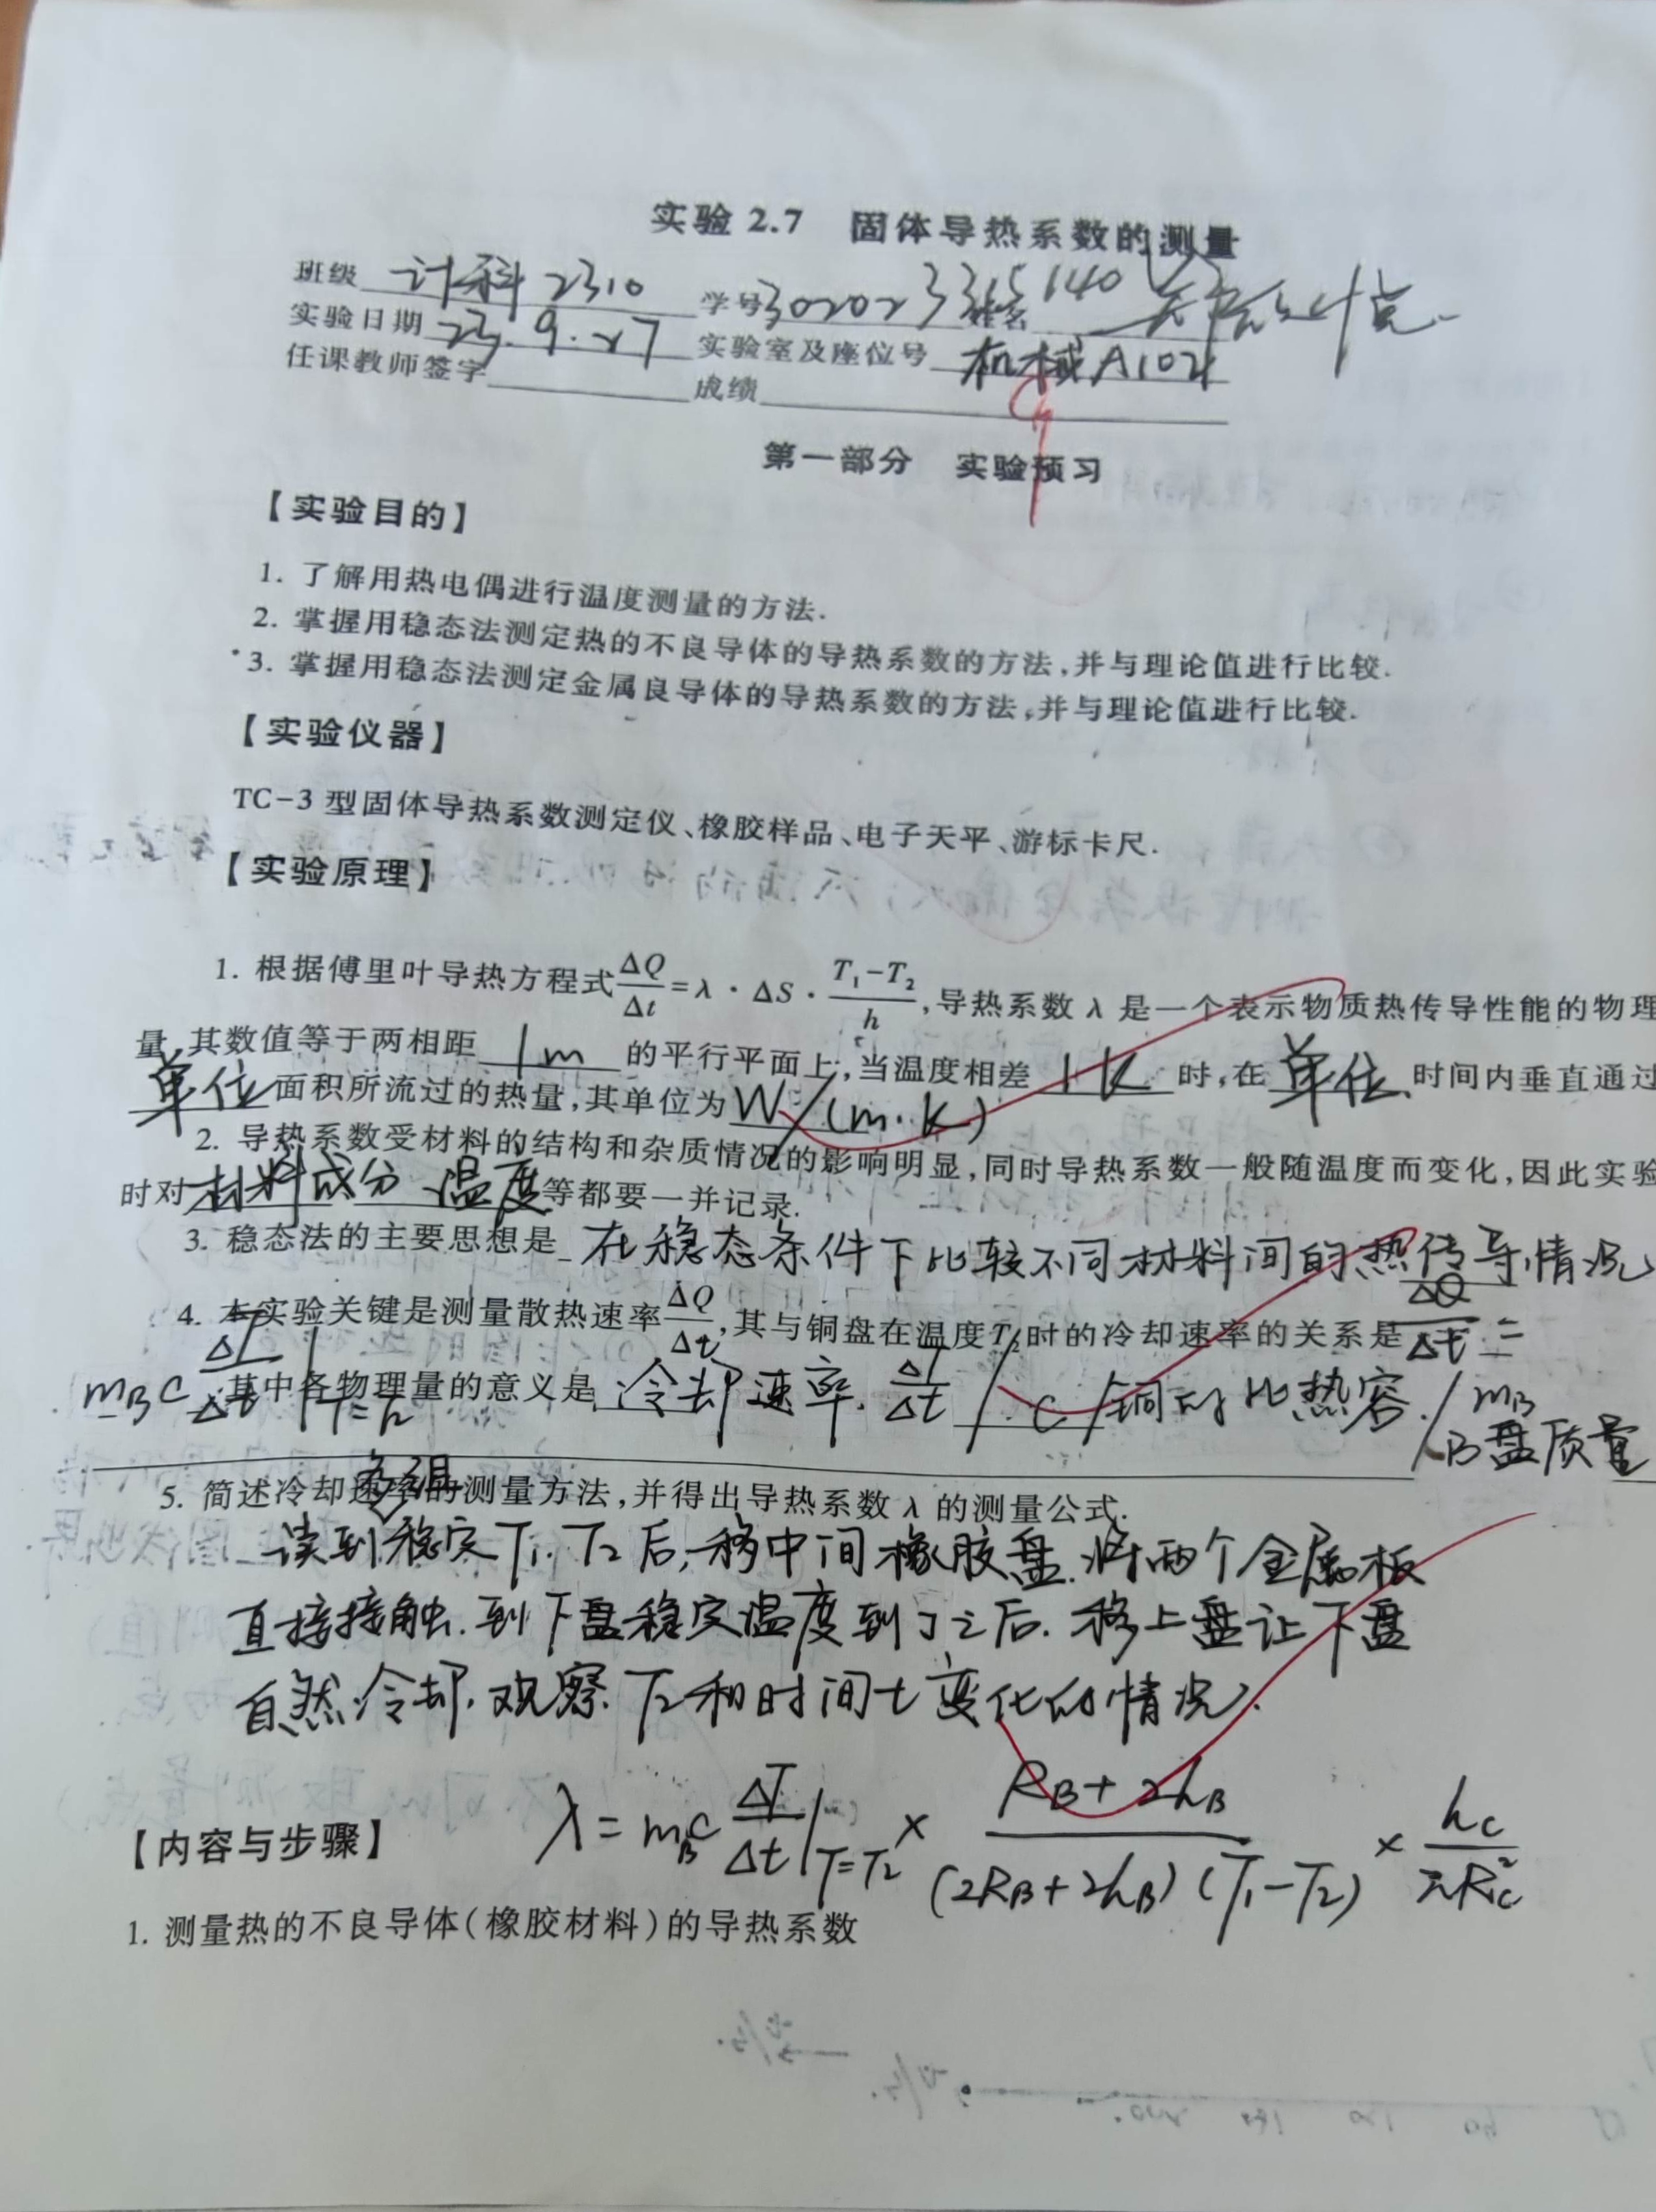 实验 2.7 固体导热系数的测量
班级 计科2310 学号 3020233315140 姓名
实验日期 23.9.27 实验室及座位号 机械A102
任课教师签字 成绩
第一部分 实验预习
【实验目的】
1. 了解用热电偶进行温度测量的方法.
2. 掌握用稳态法测定热的不良导体的导热系数的方法,并与理论值进行比较.
*3. 掌握用稳态法测定金属良导体的导热系数的方法,并与理论值进行比较.
【实验仪器】
TC-3 型固体导热系数测定仪、橡胶样品、电子天平、游标卡尺.
【实验原理】
1. 根据傅里叶导热方程式 ΔQ/Δt=λ·ΔS·(T₁-T₂)/h,导热系数 λ 是一个表示物质热传导性能的物理
量,其数值等于两相距 1m 的平行平面上,当温度相差 1K 时,在 单位 时间内垂直通过
单位 面积所流过的热量,其单位为 W/(m·K)
2. 导热系数受材料的结构和杂质情况的影响明显,同时导热系数一般随温度而变化,因此实验
时对 材料成分、温度 等都要一并记录.
3. 稳态法的主要思想是 在稳态条件下比较不同材料间的热传导情况
4. 本实验关键是测量散热速率 ΔQ/Δt,其与铜盘在温度 T₂ 时的冷却速率的关系是 ΔQ/Δt =
m_B c ΔT/Δt |T=T₂ 其中各物理量的意义是 冷却速率 ΔT/Δt / c/铜的比热容 / m_B
B盘质量
5. 简述冷却速率的测量方法,并得出导热系数 λ 的测量公式.
读到稳定T₁.T₂后,移中间橡胶盘.将两个金属板
直接接触.到下盘稳定温度到T₂后.移上盘让下盘
自然冷却.观察T₂和时间t变化的情况.
λ = m_B c ΔT/Δt |T=T₂ × (R_B+2h_B)/((2R_B+2h_B)(T₁-T₂)) × h_C/(πR_C²)
【内容与步骤】
1. 测量热的不良导体(橡胶材料)的导热系数